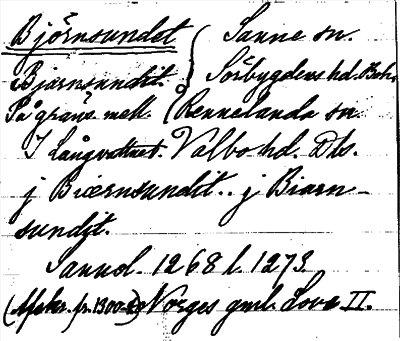 Björnsundet Sanne sn.
Bjarnsundit. Sörbygdens hd. Boh.
På gräns mell. o Rennelanda sn
I Långvattnet. Valbo hd. Dls.
j Biærnsundit.. j Biarn-
sundit.
Sannol. 1268 l. 1273
(Afskr. fr. 1300-t) Norges gml. Love II.